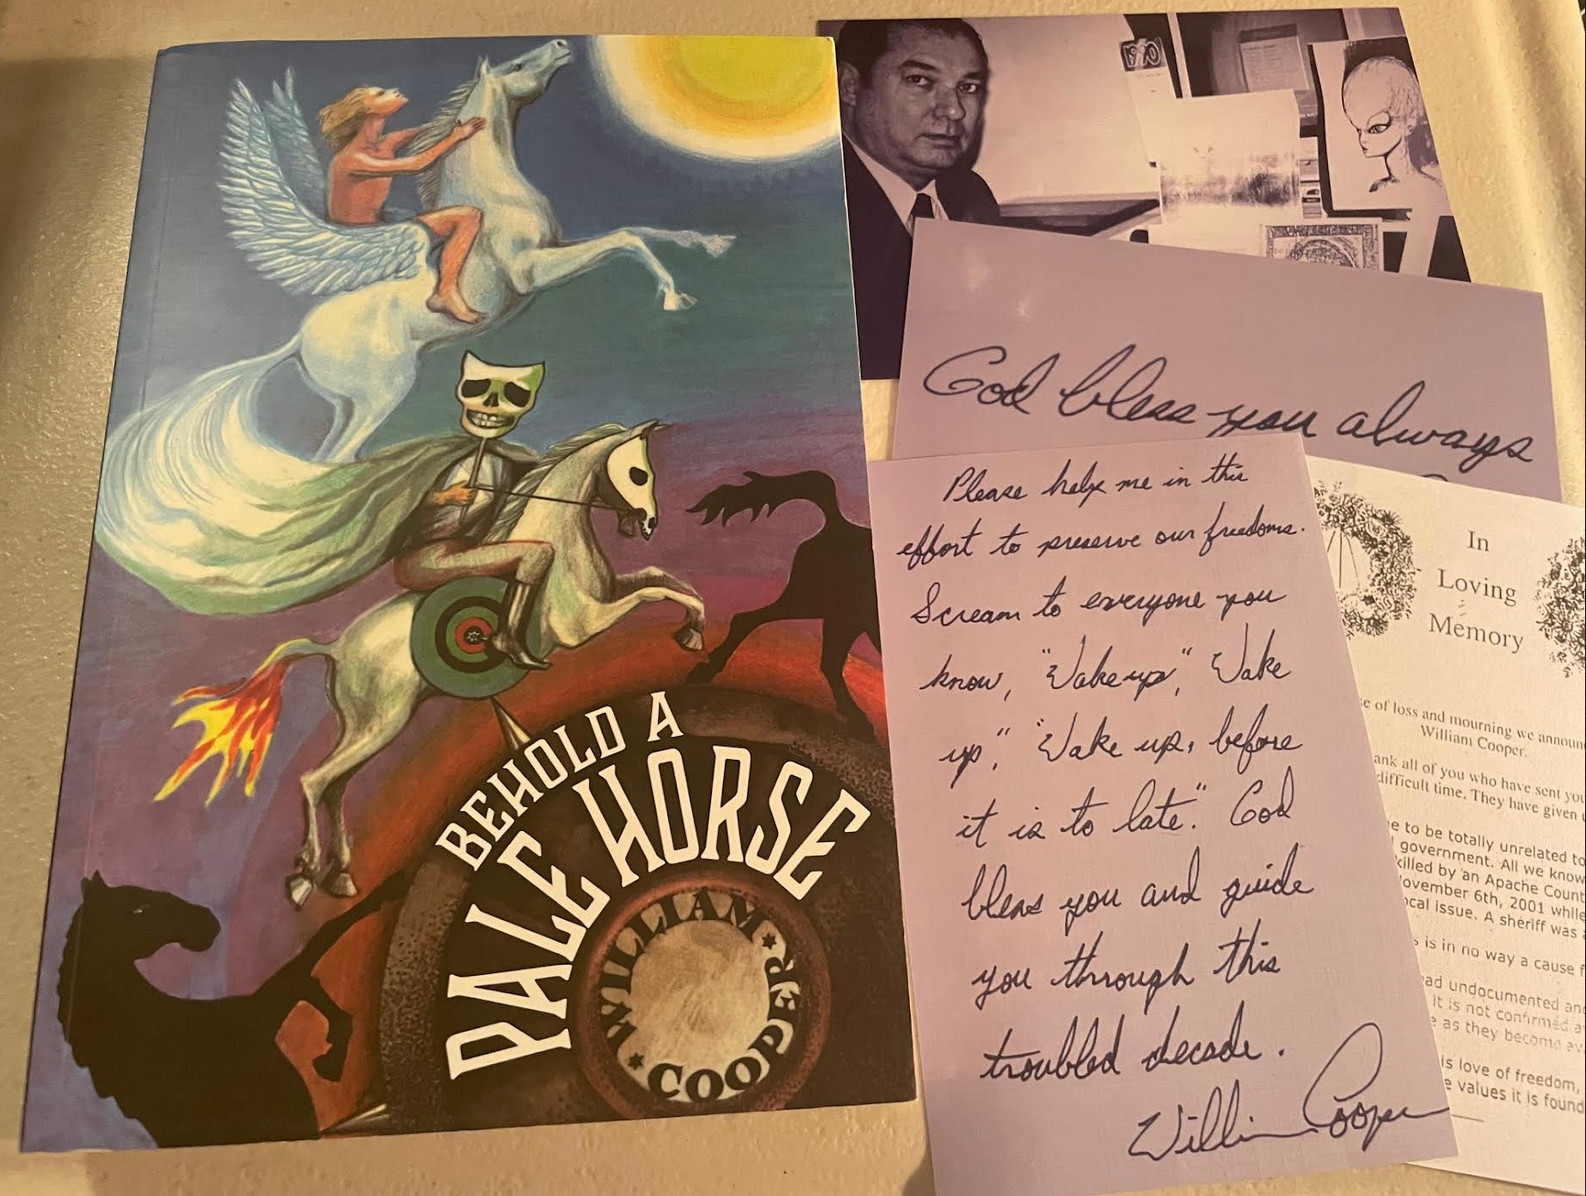 BEHOLD A
PALE HORSE
WILLIAM
COOPER
1990
God bless you always
Please help me in this
effort to preserve our freedoms.
Scream to everyone you
know, "Wake up", Wake
up," "Wake up, before
it is to late." God
bless you and guide
you through this
troubled decade.
William Cooper
In
Loving
Memory
e of loss and mourning we announ
William Cooper.
ank all of you who have sent you
difficult time. They have given
e to be totally unrelated to
government. All we know
killed by an Apache Count
November 6th, 2001 while
ocal issue. A sheriff was
is in no way a cause f
ad undocumented and
it is not confirmed a
e as they become av
is love of freedom,
e values it is found